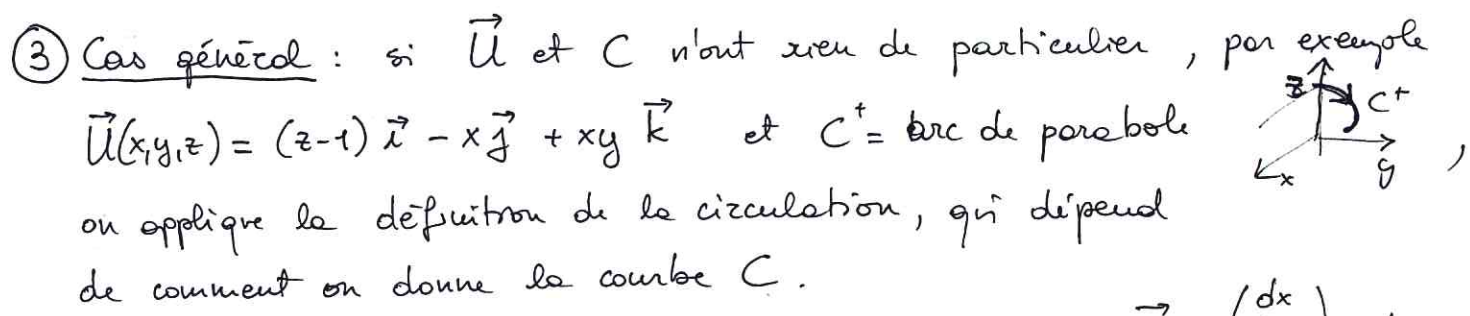 ③ Cas général : si $\vec{U}$ et C n'ont rien de particulier, par exemple
$\vec{U}(x,y,z) = (z-1)\,\vec{i} - x\,\vec{j} + xy\,\vec{k}$ et $C^+$ = arc de parabole z C+ x y ,
on applique la définition de la circulation, qui dépend
de comment on donne la courbe C.
→ ( dx )